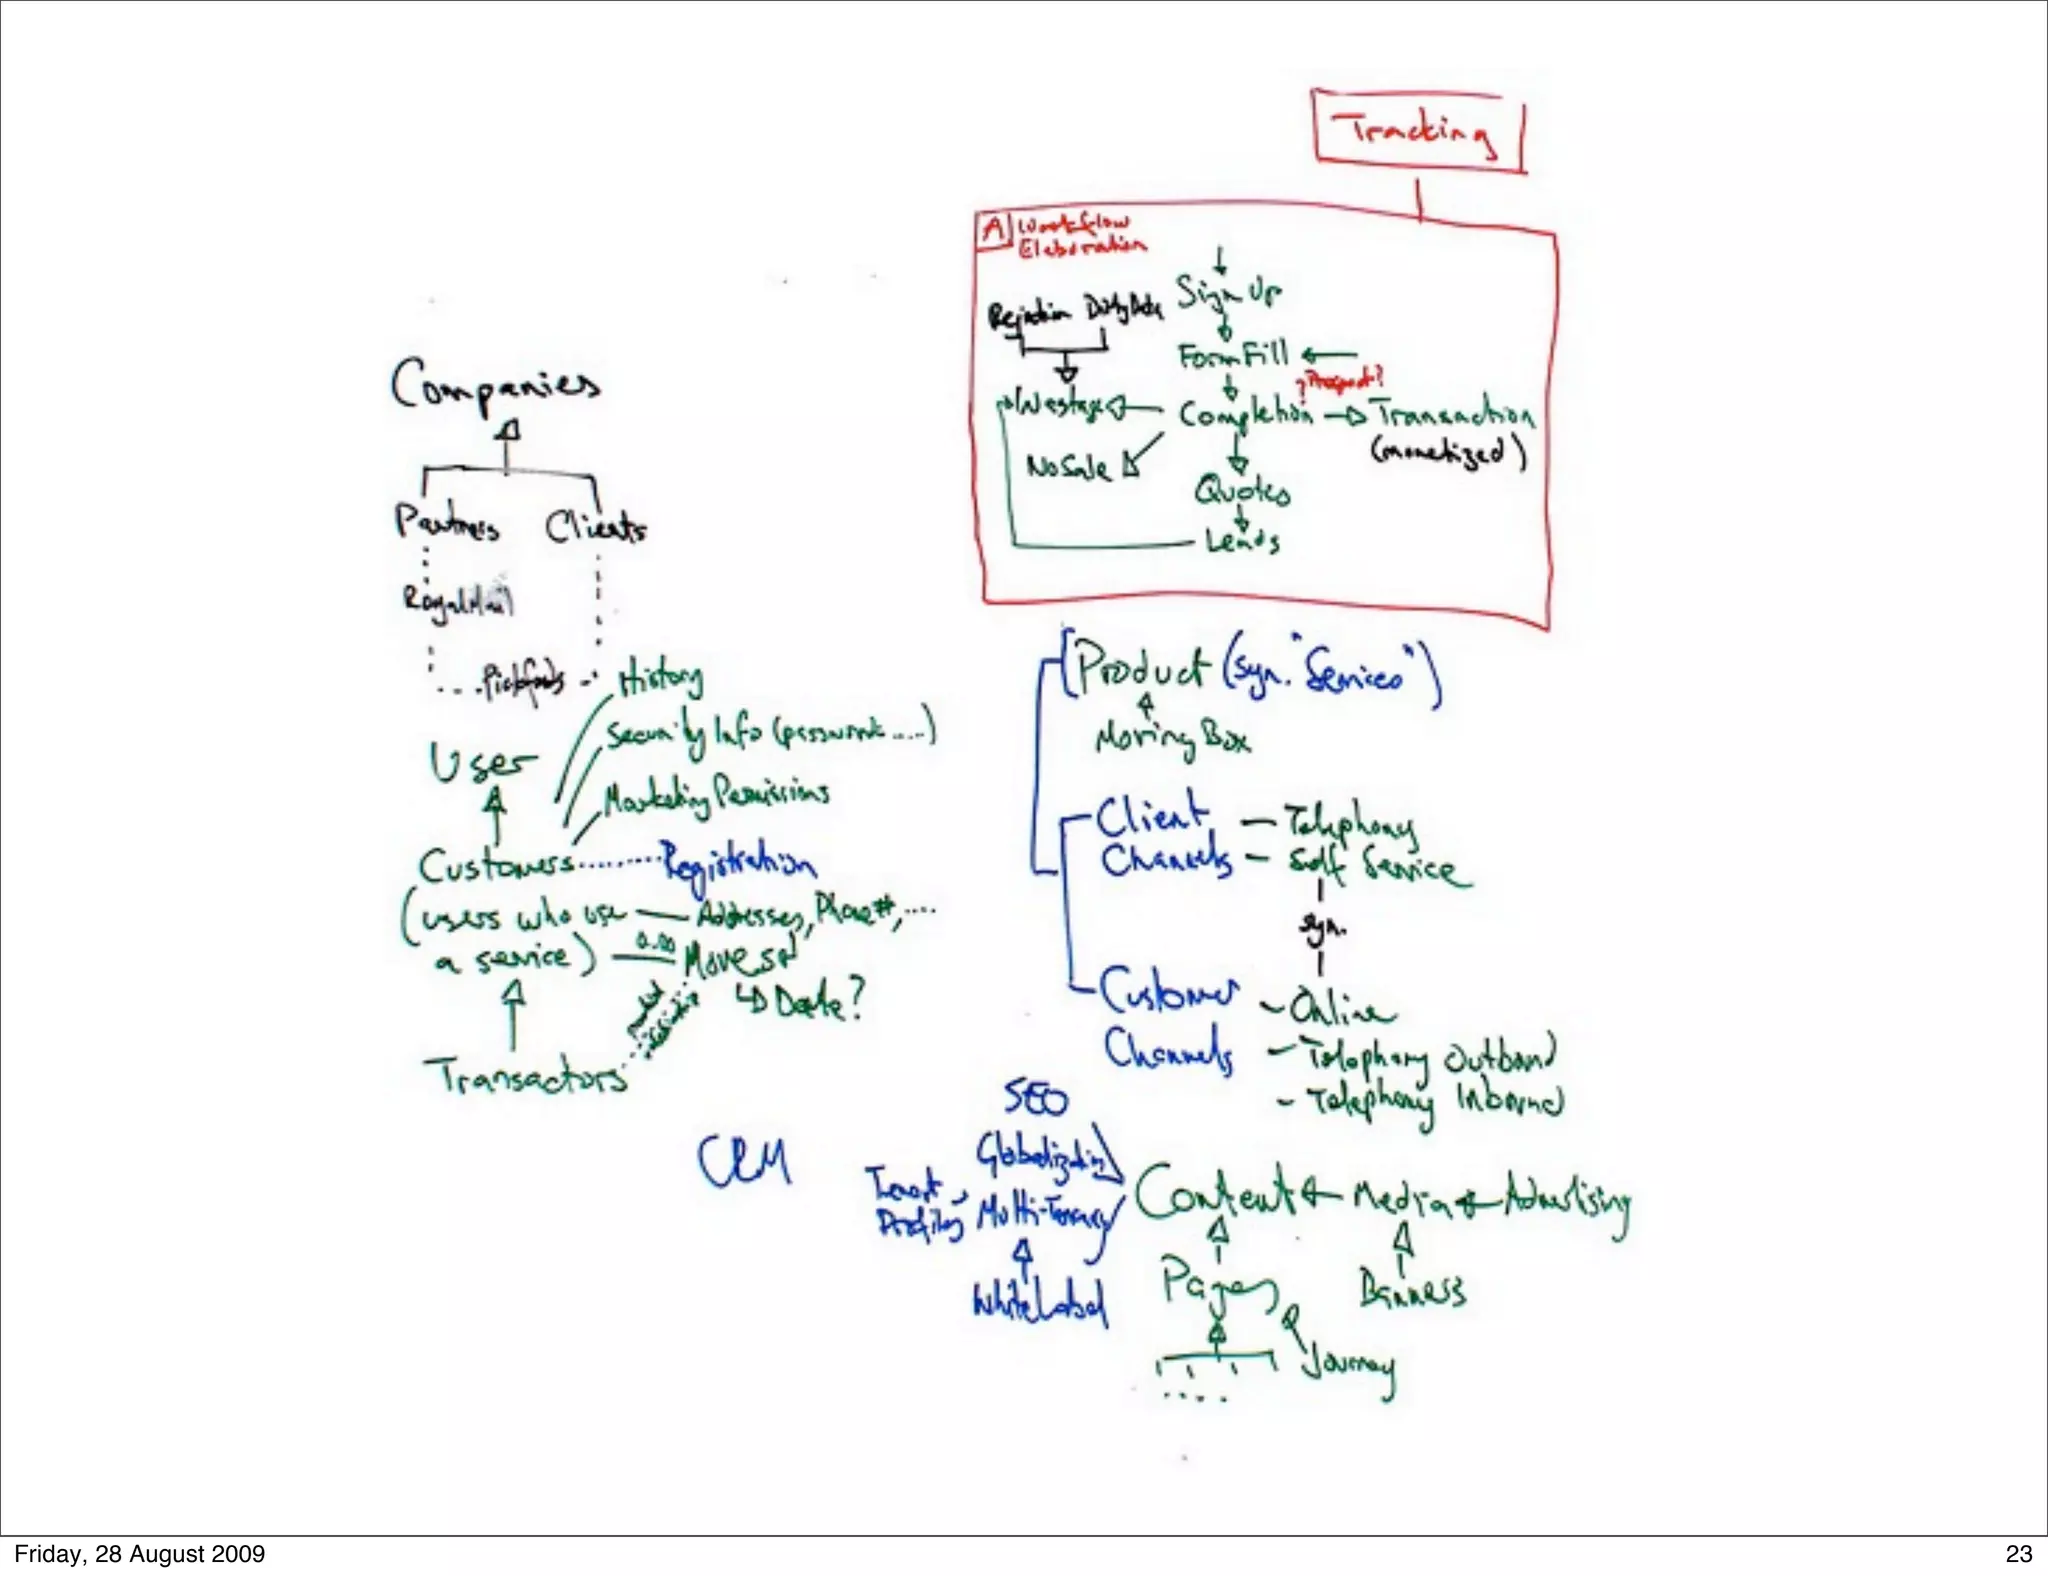 Tracking
A Workflow
Elaboration
Sign Up
Rejection Dirty Data
Form Fill
? Prospect?
Wastage
Completion
Transaction
(monetized)
No Sale
Quotes
Leads
Companies
Partners Clients
Royal Mail
Pickfords
History
Security Info (password ....)
Marketing Permissions
User
Customers
Registration
(users who use
a service)
Addresses, Phone#, ....
0..00
Moves
Date?
Transactors
CRM
Product (syn. "Services")
Moving Box
Client
Channels
- Telephony
- Self Service
syn.
Customer
Channels
- Online
- Telephony Outbound
- Telephony Inbound
SEO
Globalization
Multi-Tenancy
White Label
Content
Media
Advertising
Pages
Banners
Journey
....
Friday, 28 August 2009
23